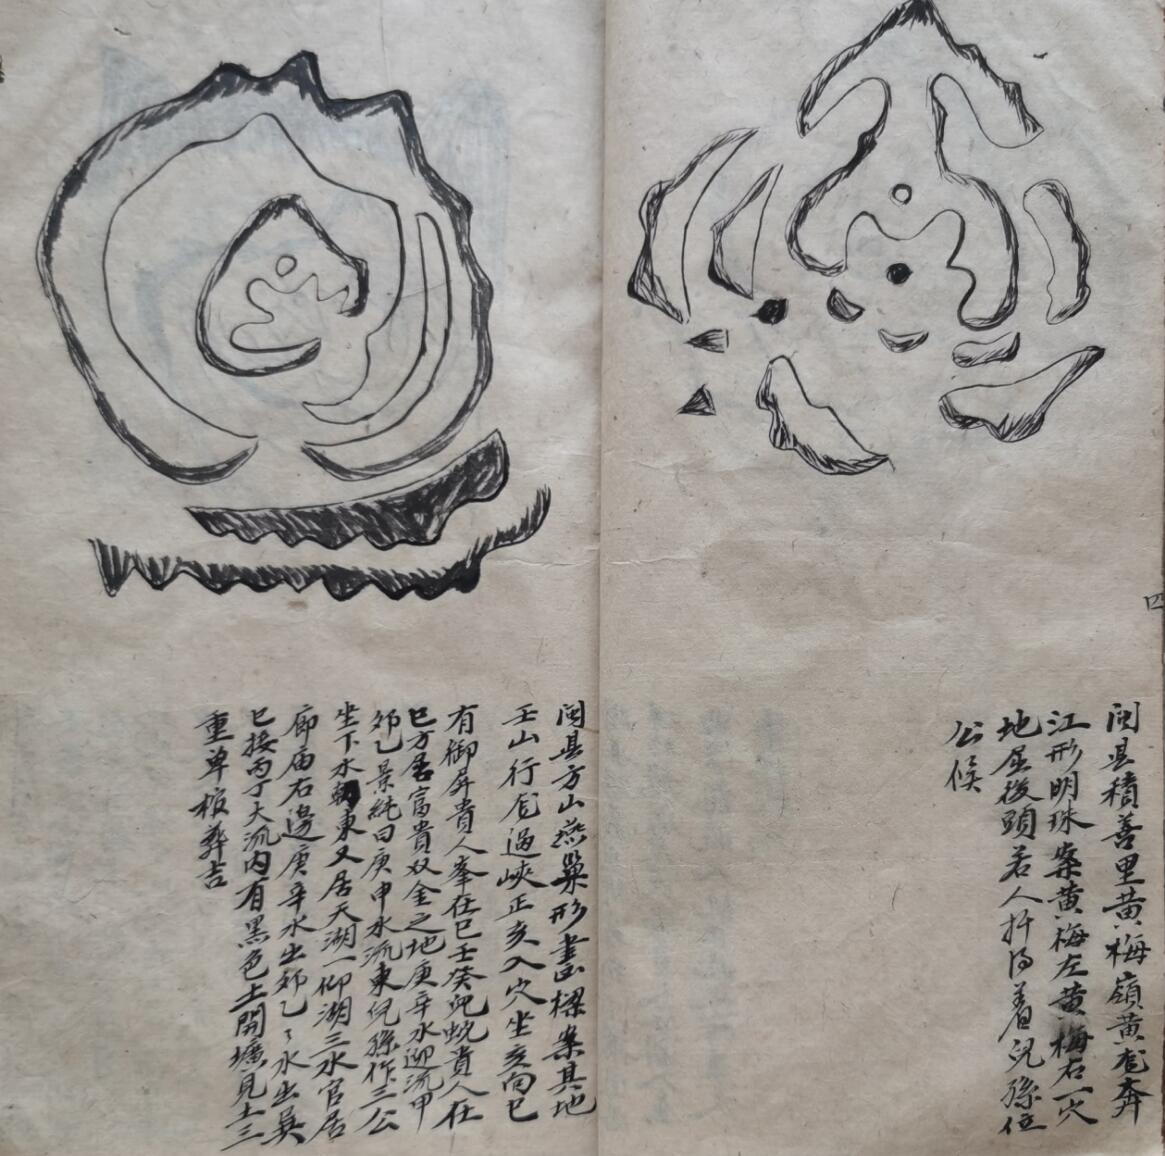 四
闽县積善里黄梅嶺黄龙奔
江形明珠案黄梅左黄梅右一穴
地屈後頭若人扦淂着児孫位
公候
闽县方山燕巢形画樑案其地
壬山行龙過峽正亥入穴坐亥向巳
有御屏貴人峯在巳壬癸児蛇貴人在
巳方居富貴双金之地庚辛水迎流甲
夘乙景純曰庚申水流東児孫作三公
坐下水朝東又居天湖一仰湖三水官居
廊庙右邊庚辛水出夘乙々水出巽
巳接丙丁大流内有黑色土開壙見土三
重单棺葬吉